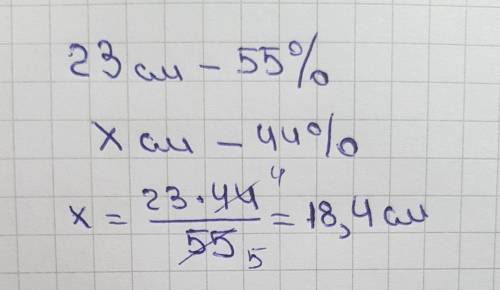 23 см – 55%
х см – 44%
х = 23·44 4 / 55 5 = 18,4 см